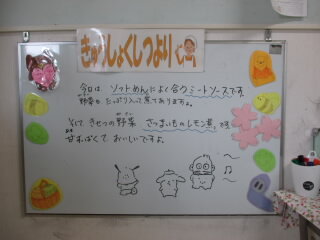 きゅうしょくしつより
今日は、ソフトめんによく合うミートソースです。
野菜も たっぷり入って煮てありますよ。
そして きせつの野菜 さつまいものレモン煮 です
甘ずぱくて おいしいですよ。